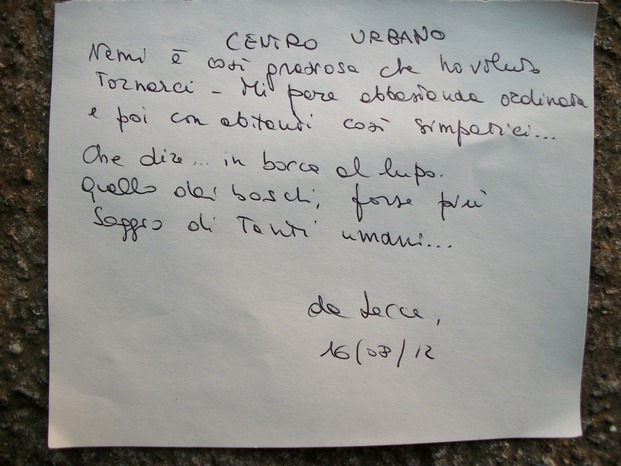 CENTRO URBANO
Nemi è così graziosa che ho voluto
tornarci - Mi pare abbastanza ordinata
e poi con abitanti così simpatici...
Che dire... in bocca al lupo.
Quello dei boschi, forse più
saggio di tanti umani...
da Lecce,
16/08/12